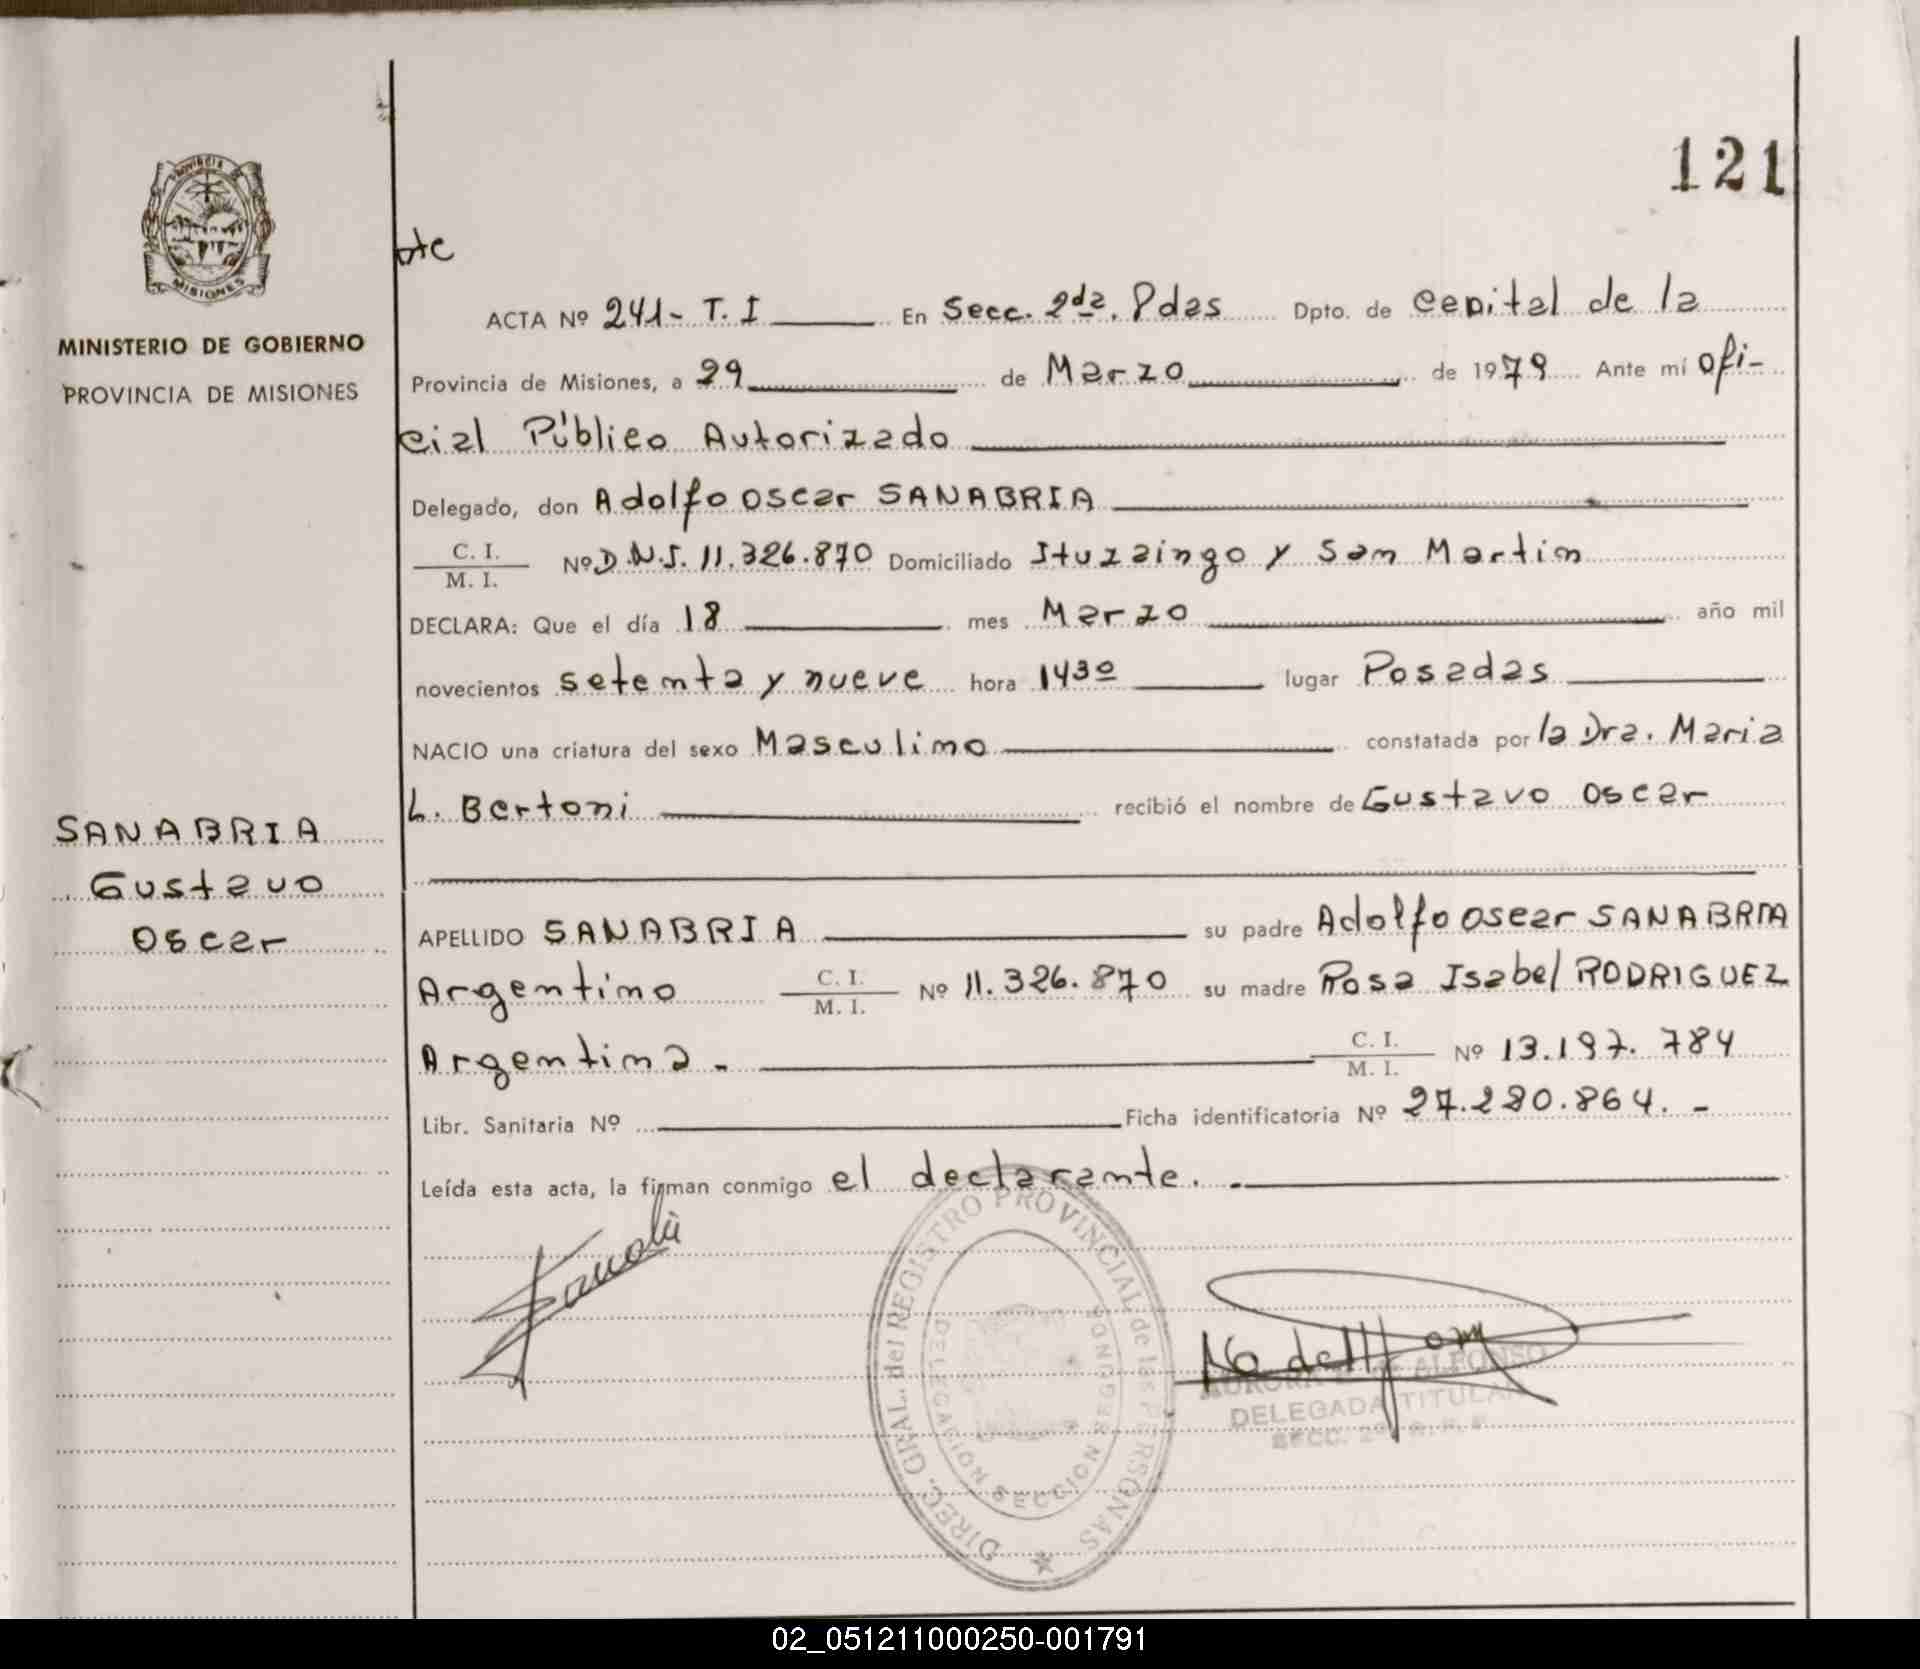 121
PROVINCIA DE
MISIONES
MINISTERIO DE GOBIERNO
PROVINCIA DE MISIONES
ACTA Nº 241- T. I En Secc. 2da. Pdas Dpto. de Capital de la
Provincia de Misiones, a 29 de Marzo de 1979 Ante mí Ofi-
cial Público Autorizado
Delegado, don Adolfo Oscar SANABRIA
C. I.
M. I. Nº D.N.I. 11.326.870 Domiciliado Ituzaingo y San Martin
DECLARA: Que el día 18 mes Marzo año mil
novecientos setenta y nueve hora 1430 lugar Posadas
NACIO una criatura del sexo Masculino constatada por la Dra. Maria
L. Bertoni recibió el nombre de Gustavo Oscar
SANABRIA
Gustavo
Oscar
APELLIDO SANABRIA su padre Adolfo Oscar SANABRIA
Argentino C. I. M. I. Nº 11.326.870 su madre Rosa Isabel RODRIGUEZ
Argentina.- C. I. M. I. Nº 13.197.784
Libr. Sanitaria Nº Ficha identificatoria Nº 27.280.864.-
Leída esta acta, la firman conmigo el declarante.-
DIREC. GRAL. del REGISTRO PROVINCIAL de las PERSONAS
DELEGACION SECCION SEGUNDA
AURORA ALFONSO
DELEGADA TITULAR
SECC. 2ª R. P. P.
02_051211000250-001791